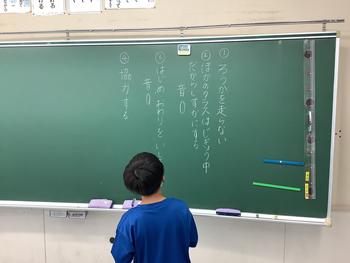 ①ろうかを走らない
②ほかのクラスはじゅぎょう中
だからしずかにする
音0
③はじめ おわりを
音0
④協力する